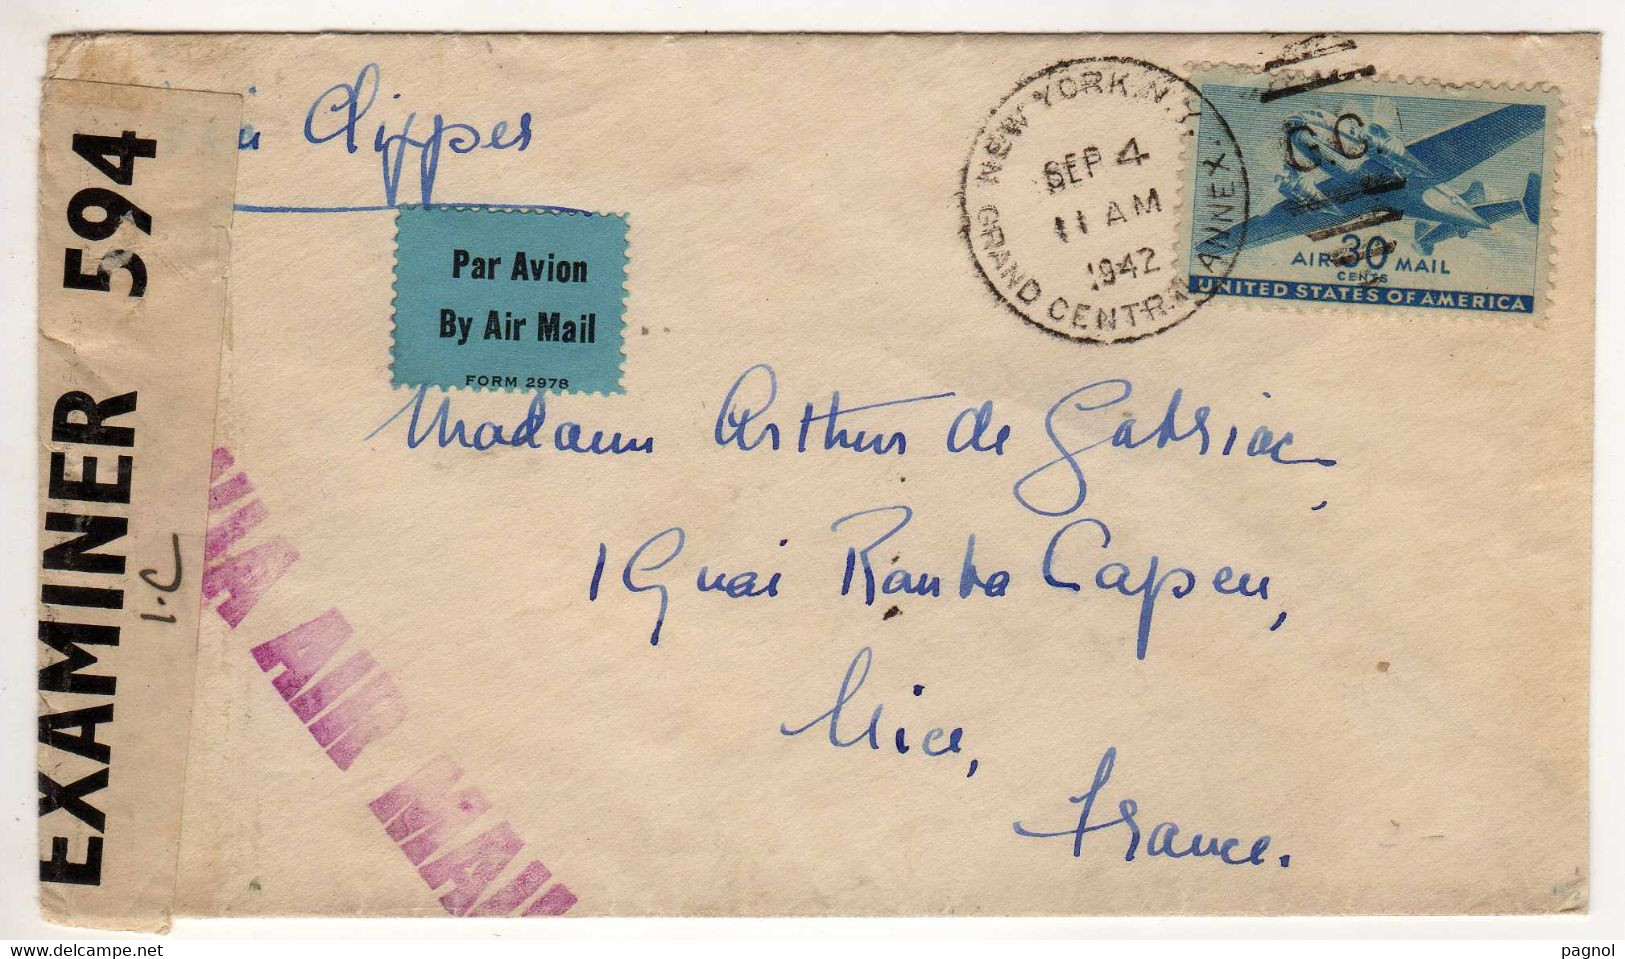 via Clipper
NEW YORK, N.Y.
SEP 4
11 AM
1942
GRAND CENTRAL ANNEX.
G.C.
AIR 30 MAIL
CENTS
UNITED STATES OF AMERICA
Par Avion
By Air Mail
FORM 2978
EXAMINER 594
1.C
VIA AIR MAIL
Madame Arthur de Gabriac,
1 Quai Rauba Capeu,
Nice,
France.
delcampe.net
pagnol